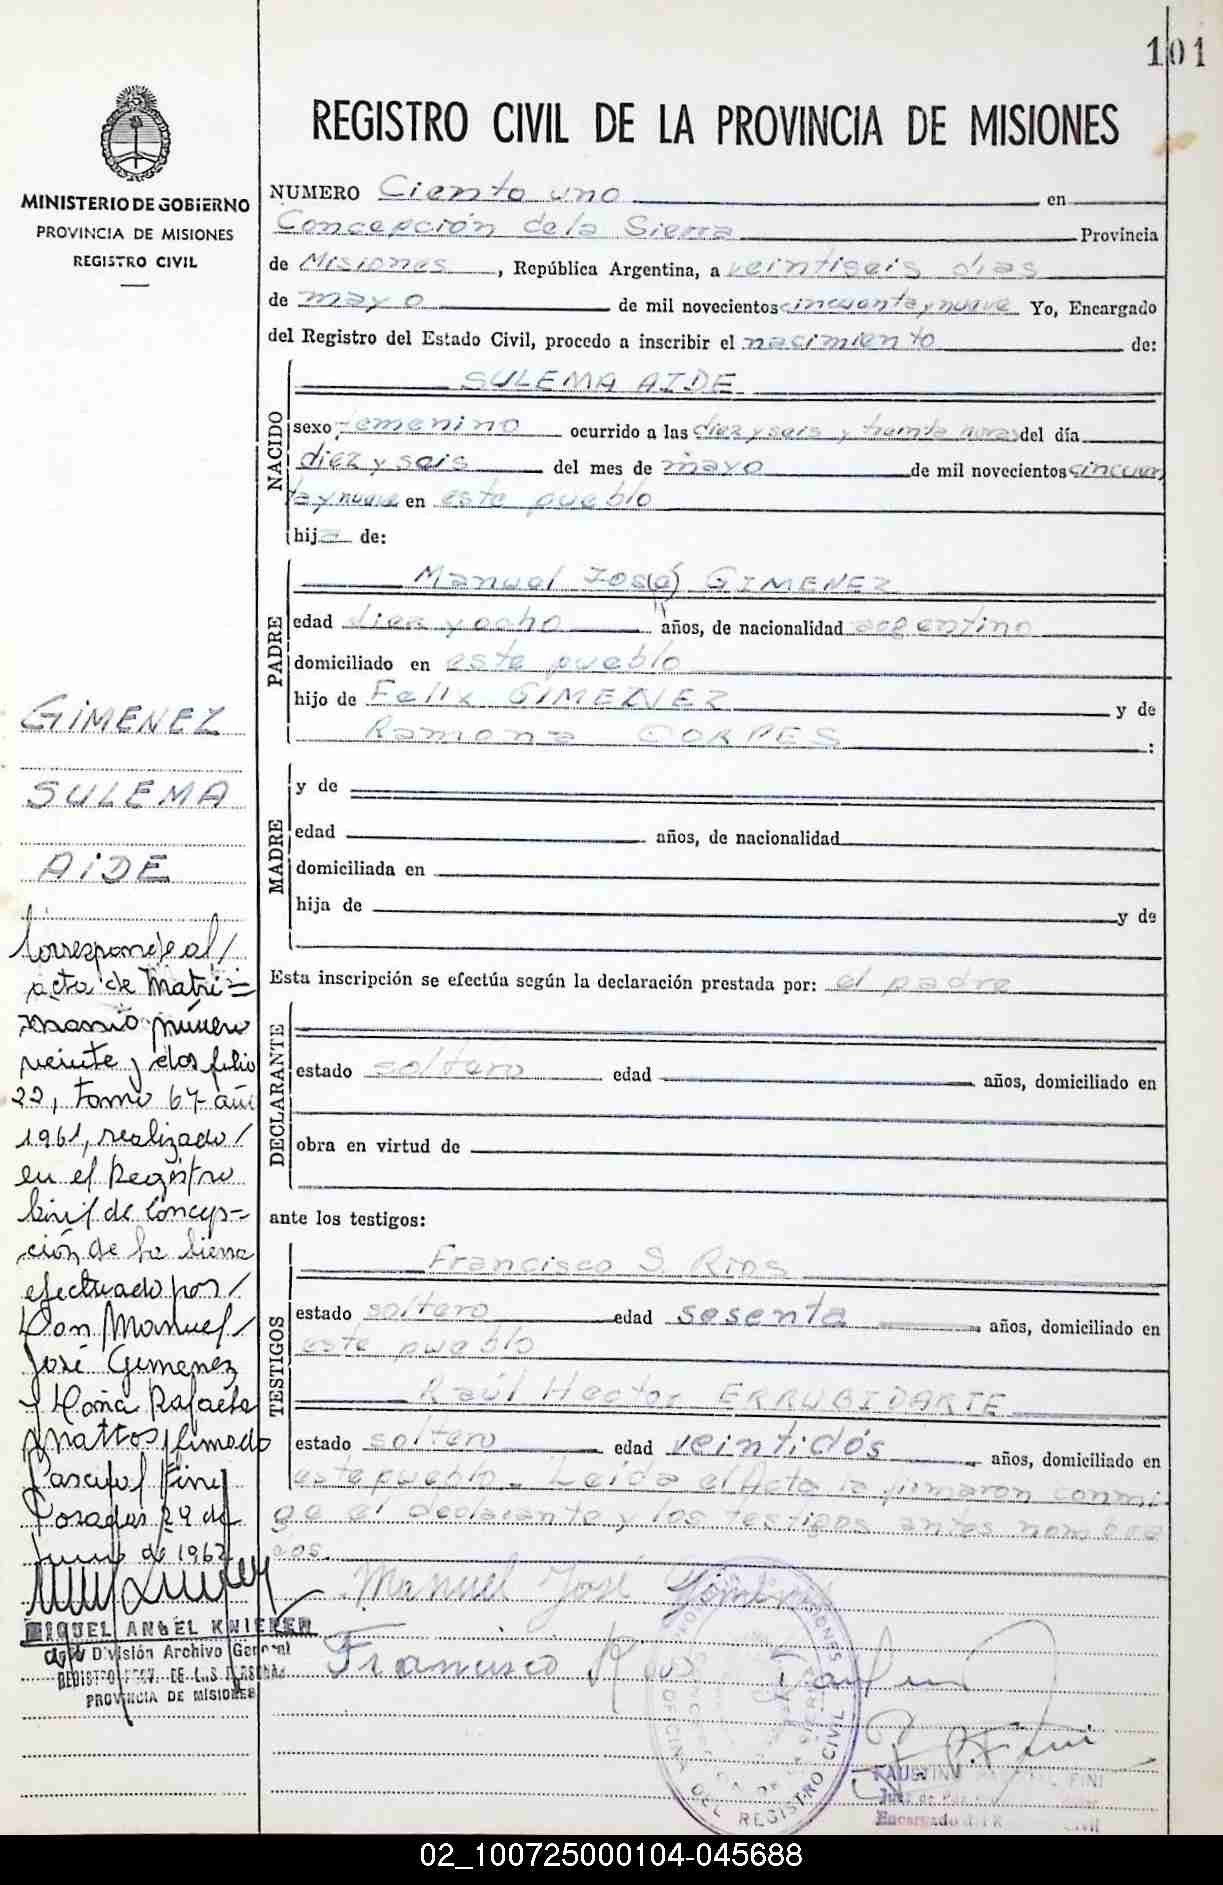 101
REGISTRO CIVIL DE LA PROVINCIA DE MISIONES
MINISTERIO DE GOBIERNO
PROVINCIA DE MISIONES
REGISTRO CIVIL
NUMERO Ciento uno en
Concepción de la Sierra Provincia
de Misiones, República Argentina, a veintiseis dias
de mayo de mil novecientos cincuenta y nueve Yo, Encargado
del Registro del Estado Civil, procedo a inscribir el nacimiento de:
NACIDO
SULEMA AIDE
sexo femenino ocurrido a las diez y seis y treinta horas del día
diez y seis del mes de mayo de mil novecientos cincuen
ta y nueve en este pueblo
hija de:
PADRE
Manuel José GIMENEZ
edad diez y ocho años, de nacionalidad argentino
domiciliado en este pueblo
hijo de Felix GIMENEZ y de
Ramona :
MADRE
y de
edad años, de nacionalidad
domiciliada en
hija de y de
Esta inscripción se efectúa según la declaración prestada por: el padre
DECLARANTE
estado soltero edad años, domiciliado en
obra en virtud de
ante los testigos:
TESTIGOS
Francisco S. Rios
estado soltero edad sesenta años, domiciliado en
este pueblo
Raúl Hector ERRUBIDARTE
estado soltero edad veintidós años, domiciliado en
este pueblo. Leida el Acta la firmaron conmi
go el declarante y los testigos antes nombra
dos.
Manuel José Gimenez
Francisco
OFICINA DEL REGISTRO CIVIL
FINI
Juez de Paz
Encargado del R Civil
GIMENEZ
SULEMA
AIDE
Corresponde al/
acta de Matri=
monio número
veinte y dos folio
22, tomo 67 año
1961, realizado/
en el Registro
Civil de Concep-
ción de la Sierra
efectuado por/
Don Manuel/
José Gimenez
y Doña Rafaela
Mattos, firmado
Pascual Fini
Posadas 29 de
junio de 1962
MIGUEL ANGEL KNIEPER
División Archivo General
REGISTRO PROV. DE LAS PERSONAS
PROVINCIA DE MISIONES
02_100725000104-045688